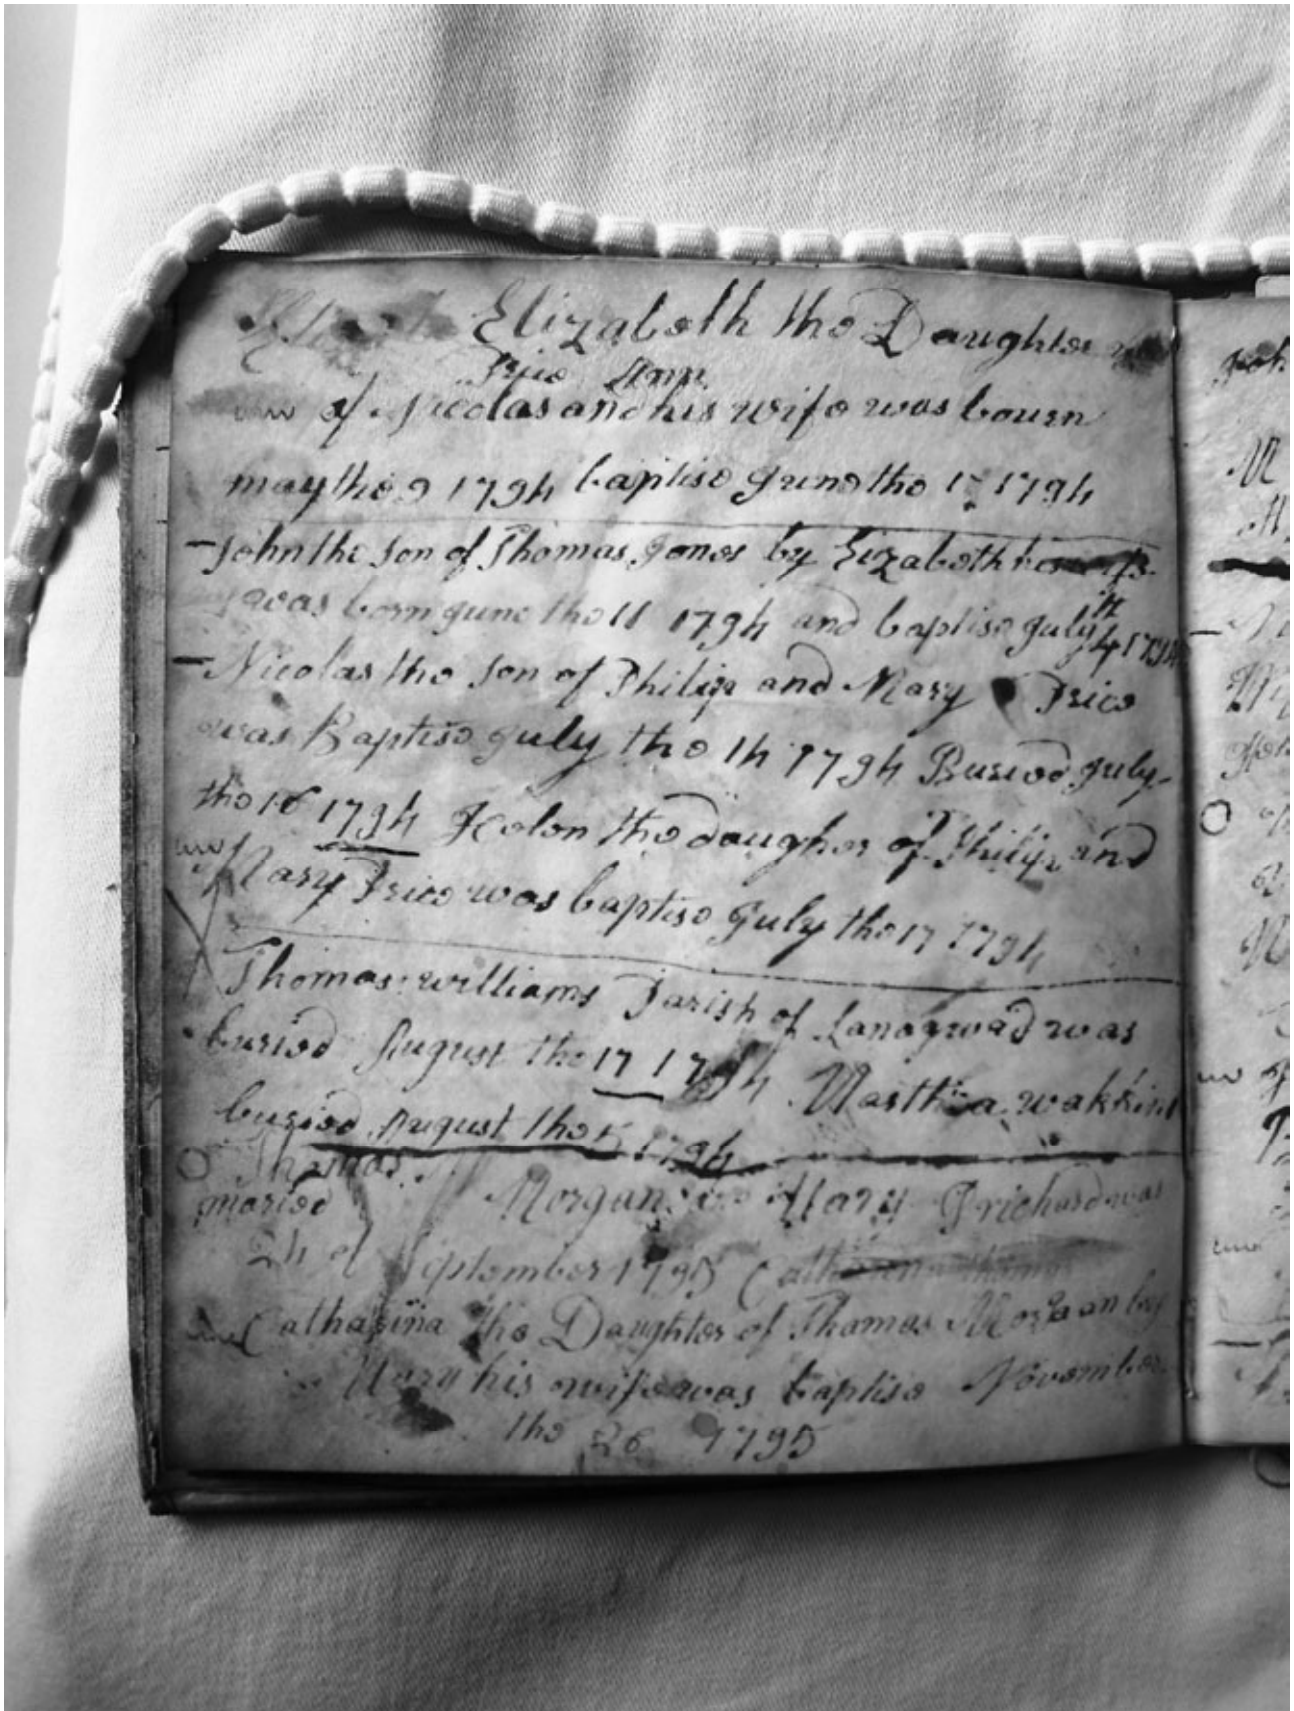 Elizabeth the Daughter
Price Ann
of Nicolas and his wife was bourn
may the 9 1794 baptise June the 1794
John the son of Thomas Jones by Elizabeth
was born June the 11 1794 and baptise July 4th 1794
Nicolas the son of Philip and Mary Price
was Baptise July the 14 1794 Buried July
the 16 1794 Helen the daugher of Philip and
Mary Price was baptise July the 17 1794
Thomas williams Parish of Lanogwad was
buried August the 17 1794 Marthia wakkins
buried August the 5 1794
Thomas
maried Morgan Mary Prichard was
24 of September 1795
Catharina the Daughter of Thomas Morgan by
Mary his wife was baptise November
the 26 1795